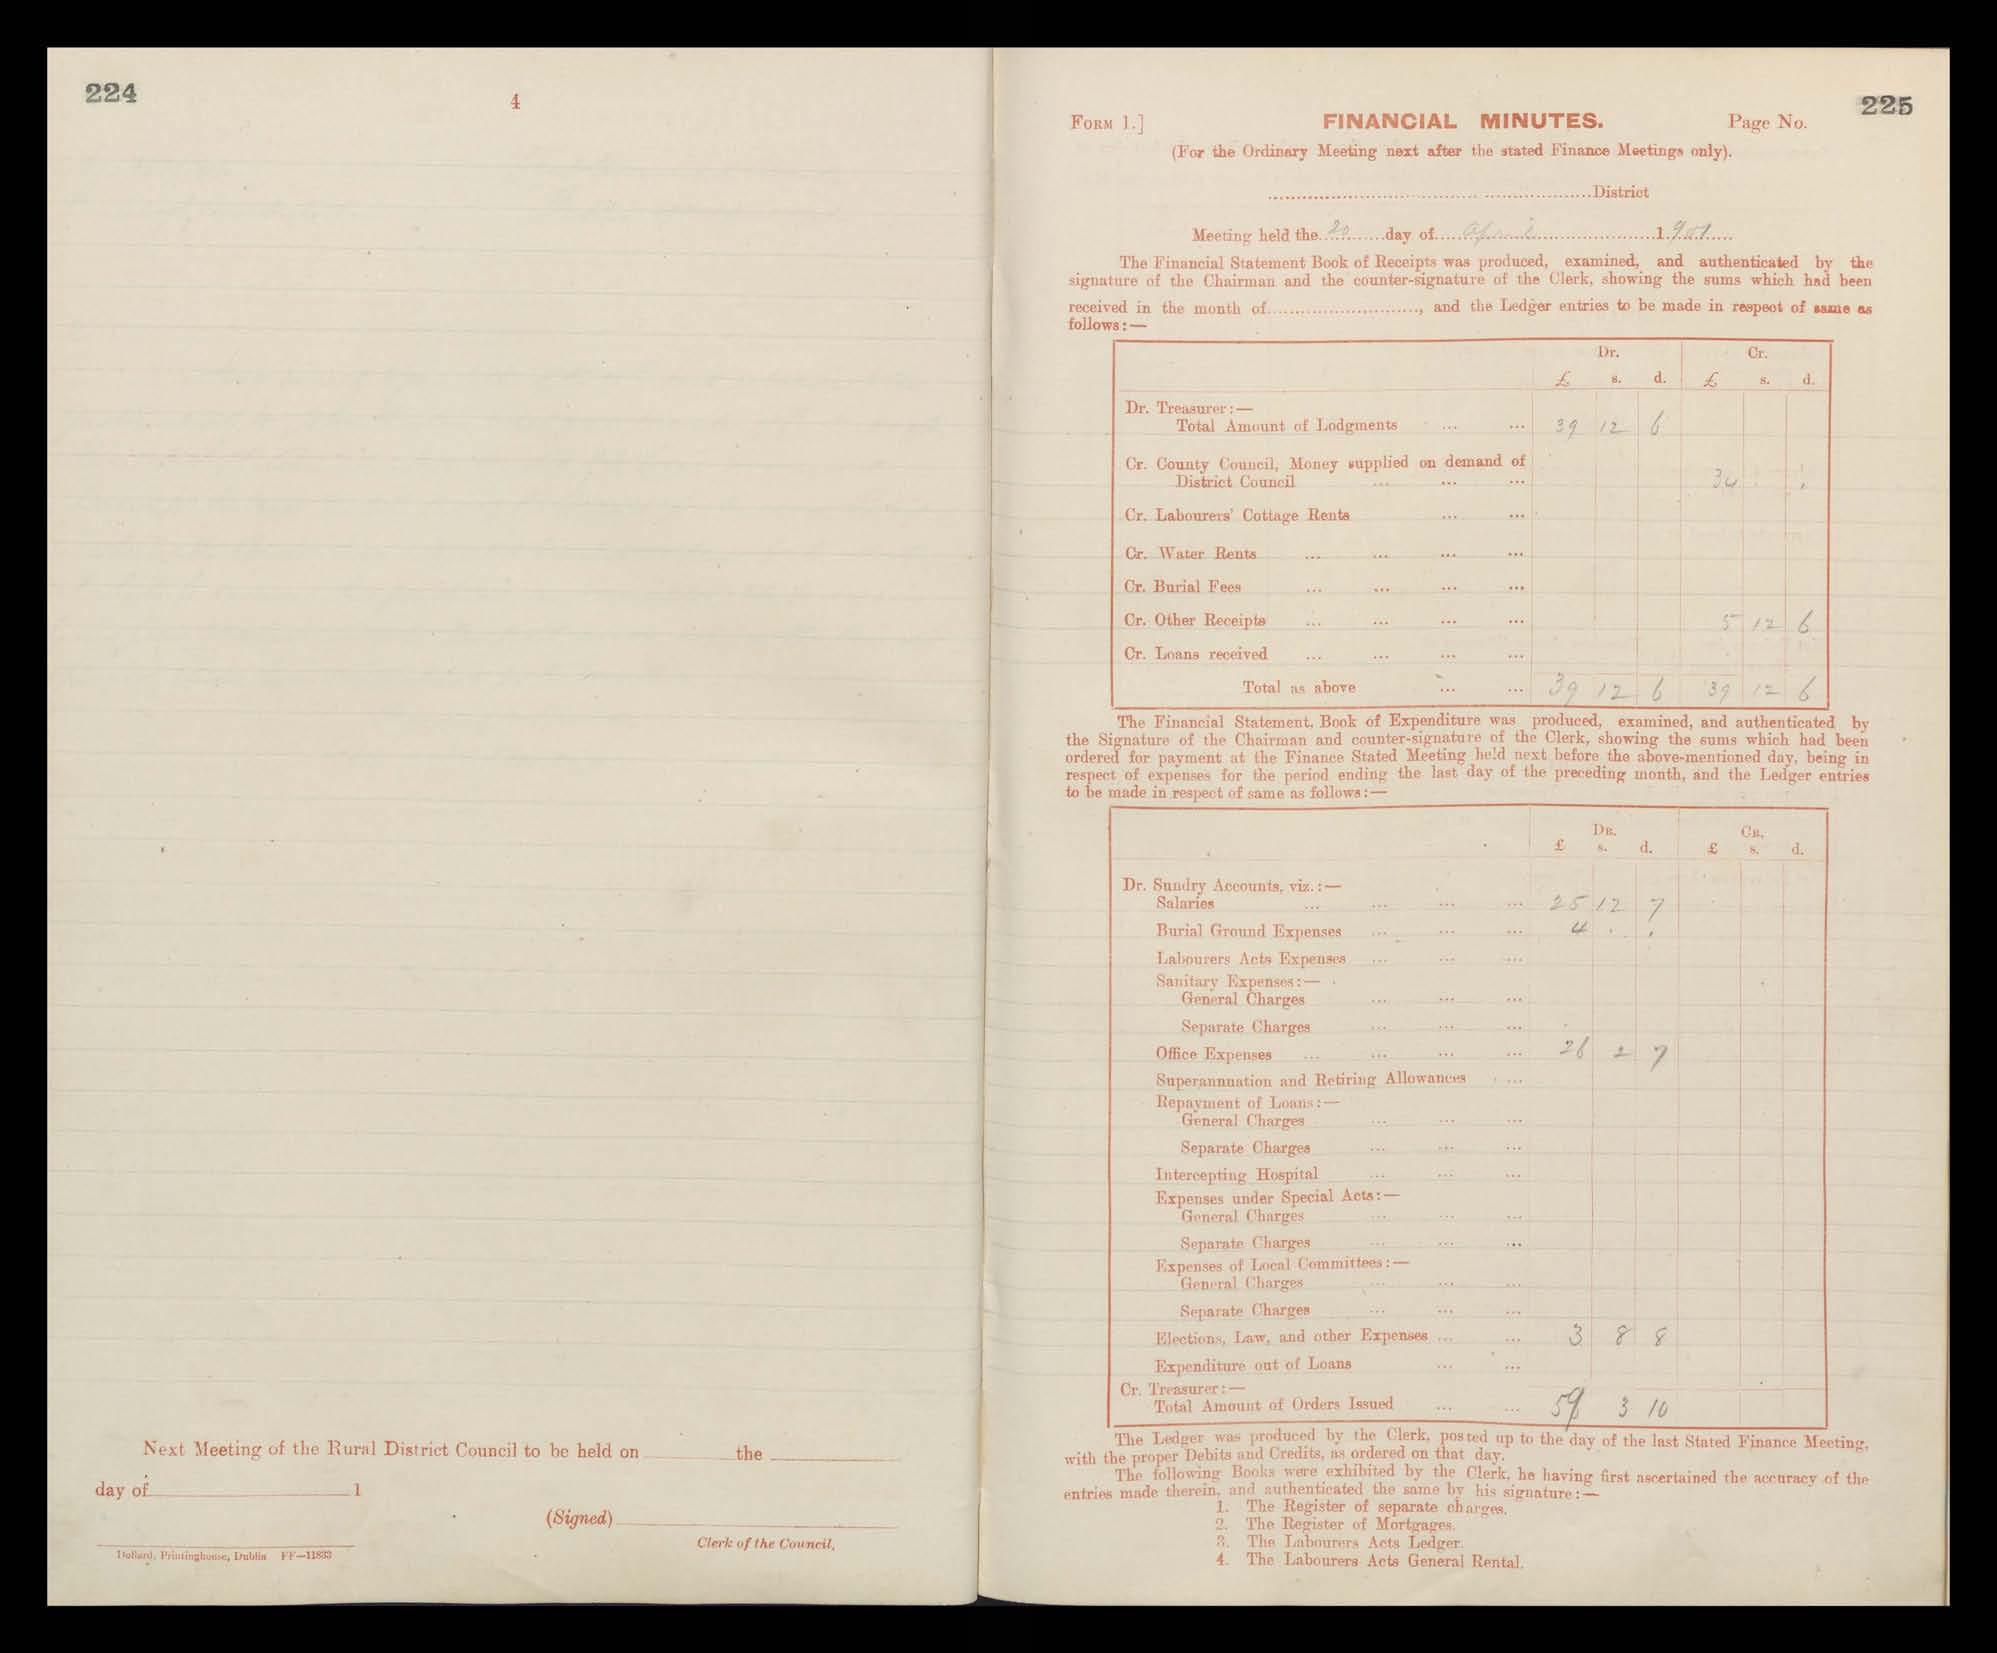 224
4
Next Meeting of the Rural District Council to be held on the
day of 1
(Signed)
Clerk of the Council,
Dollard, Printinghouse, Dublin FF—11833
225
FORM 1.] FINANCIAL MINUTES. Page No.
(For the Ordinary Meeting next after the stated Finance Meetings only).
District
Meeting held the 20 day of April 1901
The Financial Statement Book of Receipts was produced, examined, and authenticated by the
signature of the Chairman and the counter-signature of the Clerk, showing the sums which had been
received in the month of , and the Ledger entries to be made in respect of same as
follows:—
Dr. Cr.
£ s. d. £ s. d.
Dr. Treasurer:—
Total Amount of Lodgments ... ... 39 12 6
Cr. County Council, Money supplied on demand of
District Council ... ... ... 34 . .
Cr. Labourers' Cottage Rents ... ...
Cr. Water Rents ... ... ... ...
Cr. Burial Fees ... ... ... ...
Cr. Other Receipts ... ... ... ... 5 12 6
Cr. Loans received ... ... ... ...
Total as above ... ... 39 12 6 39 12 6
The Financial Statement, Book of Expenditure was produced, examined, and authenticated by
the Signature of the Chairman and counter-signature of the Clerk, showing the sums which had been
ordered for payment at the Finance Stated Meeting held next before the above-mentioned day, being in
respect of expenses for the period ending the last day of the preceding month, and the Ledger entries
to be made in respect of same as follows:—
DR. CR.
£ s. d. £ s. d.
Dr. Sundry Accounts, viz.:—
Salaries ... ... ... ... 25 12 7
Burial Ground Expenses ... ... ... 4 . .
Labourers Acts Expenses ... ... ...
Sanitary Expenses:—
General Charges ... ... ...
Separate Charges ... ... ...
Office Expenses ... ... ... ... 26 2 7
Superannuation and Retiring Allowances ...
Repayment of Loans:—
General Charges ... ... ...
Separate Charges ... ... ...
Intercepting Hospital ... ... ...
Expenses under Special Acts:—
General Charges ... ... ...
Separate Charges ... ... ...
Expenses of Local Committees:—
General Charges ... ... ...
Separate Charges ... ... ...
Elections, Law, and other Expenses ... ... 3 8 8
Expenditure out of Loans ... ...
Cr. Treasurer:—
Total Amount of Orders Issued ... ... 59 3 10
The Ledger was produced by the Clerk, posted up to the day of the last Stated Finance Meeting,
with the proper Debits and Credits, as ordered on that day.
The following Books were exhibited by the Clerk, he having first ascertained the accuracy of the
entries made therein, and authenticated the same by his signature:—
1. The Register of separate charges.
2. The Register of Mortgages.
3. The Labourers Acts Ledger.
4. The Labourers Acts General Rental.